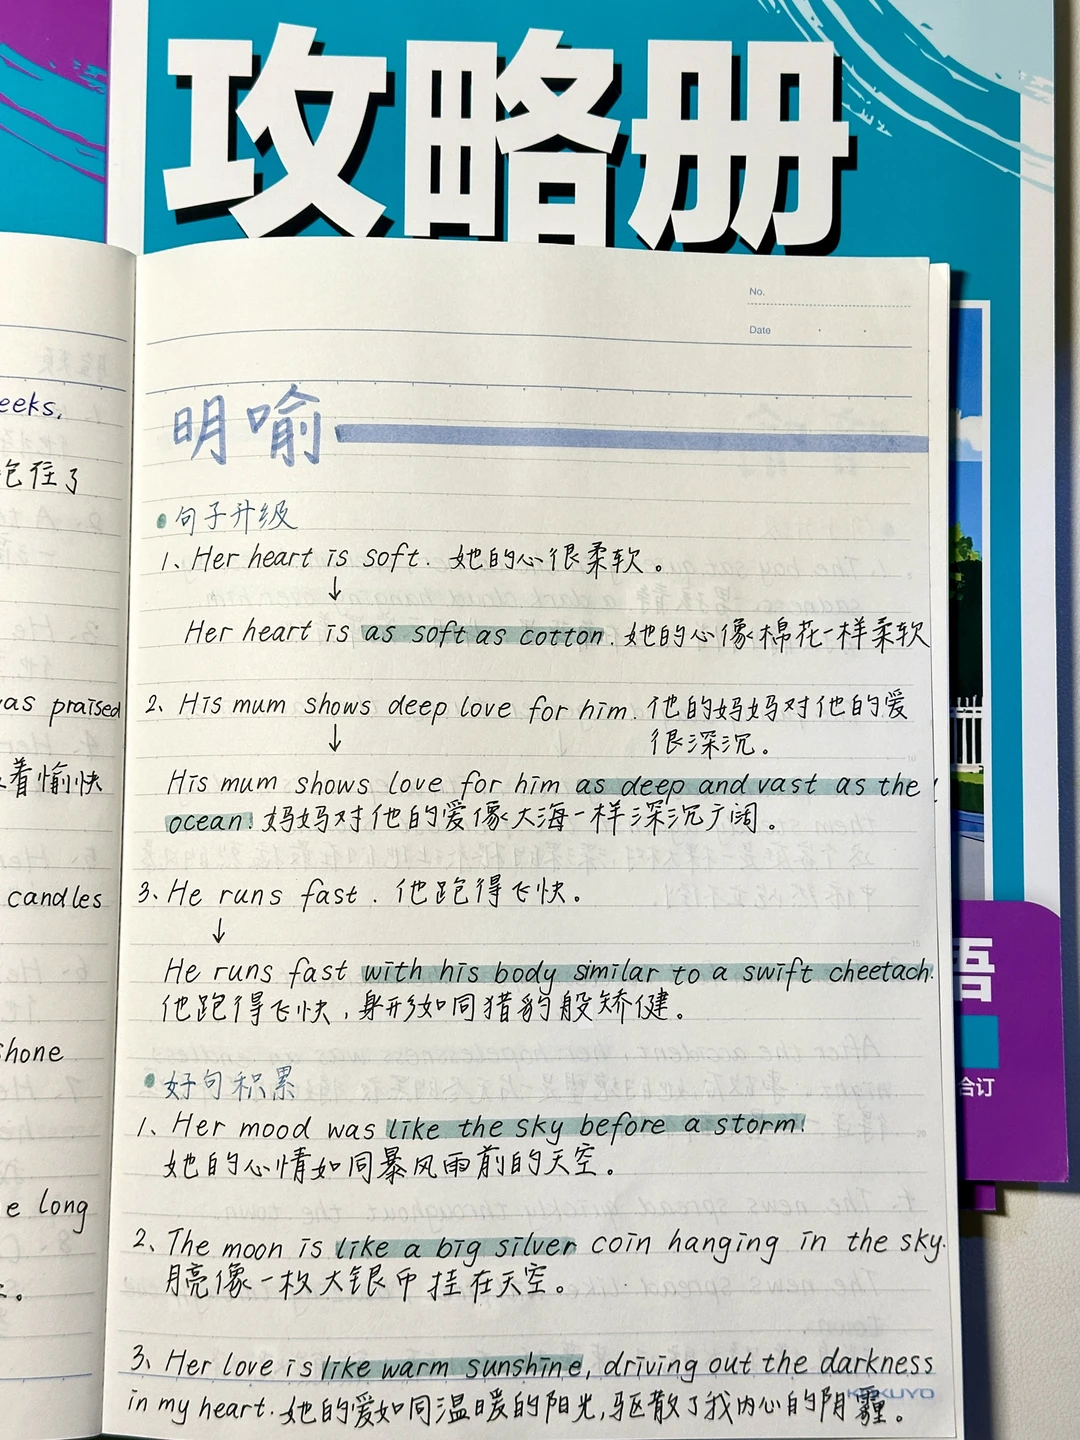 攻略册
No.
Date
eeks.
包住了
as praised
着愉快
candles
shone
e long
明喻
句子升级
1、Her heart is soft. 她的心很柔软。
↓
Her heart is as soft as cotton. 她的心像棉花一样柔软
2、His mum shows deep love for him. 他的妈妈对他的爱
很深沉。
↓
His mum shows love for him as deep and vast as the
ocean! 妈妈对他的爱像大海一样深沉广阔。
3、He runs fast. 他跑得飞快。
↓
He runs fast with his body similar to a swift cheetach.
他跑得飞快，身形如同猎豹般矫健。
好句积累
1、Her mood was like the sky before a storm!
她的心情如同暴风雨前的天空。
2、The moon is like a big silver coin hanging in the sky.
月亮像一枚大银币挂在天空。
3、Her love is like warm sunshine, driving out the darkness
in my heart. 她的爱如同温暖的阳光,驱散了我内心的阴霾。
KOKUYO
语
合订